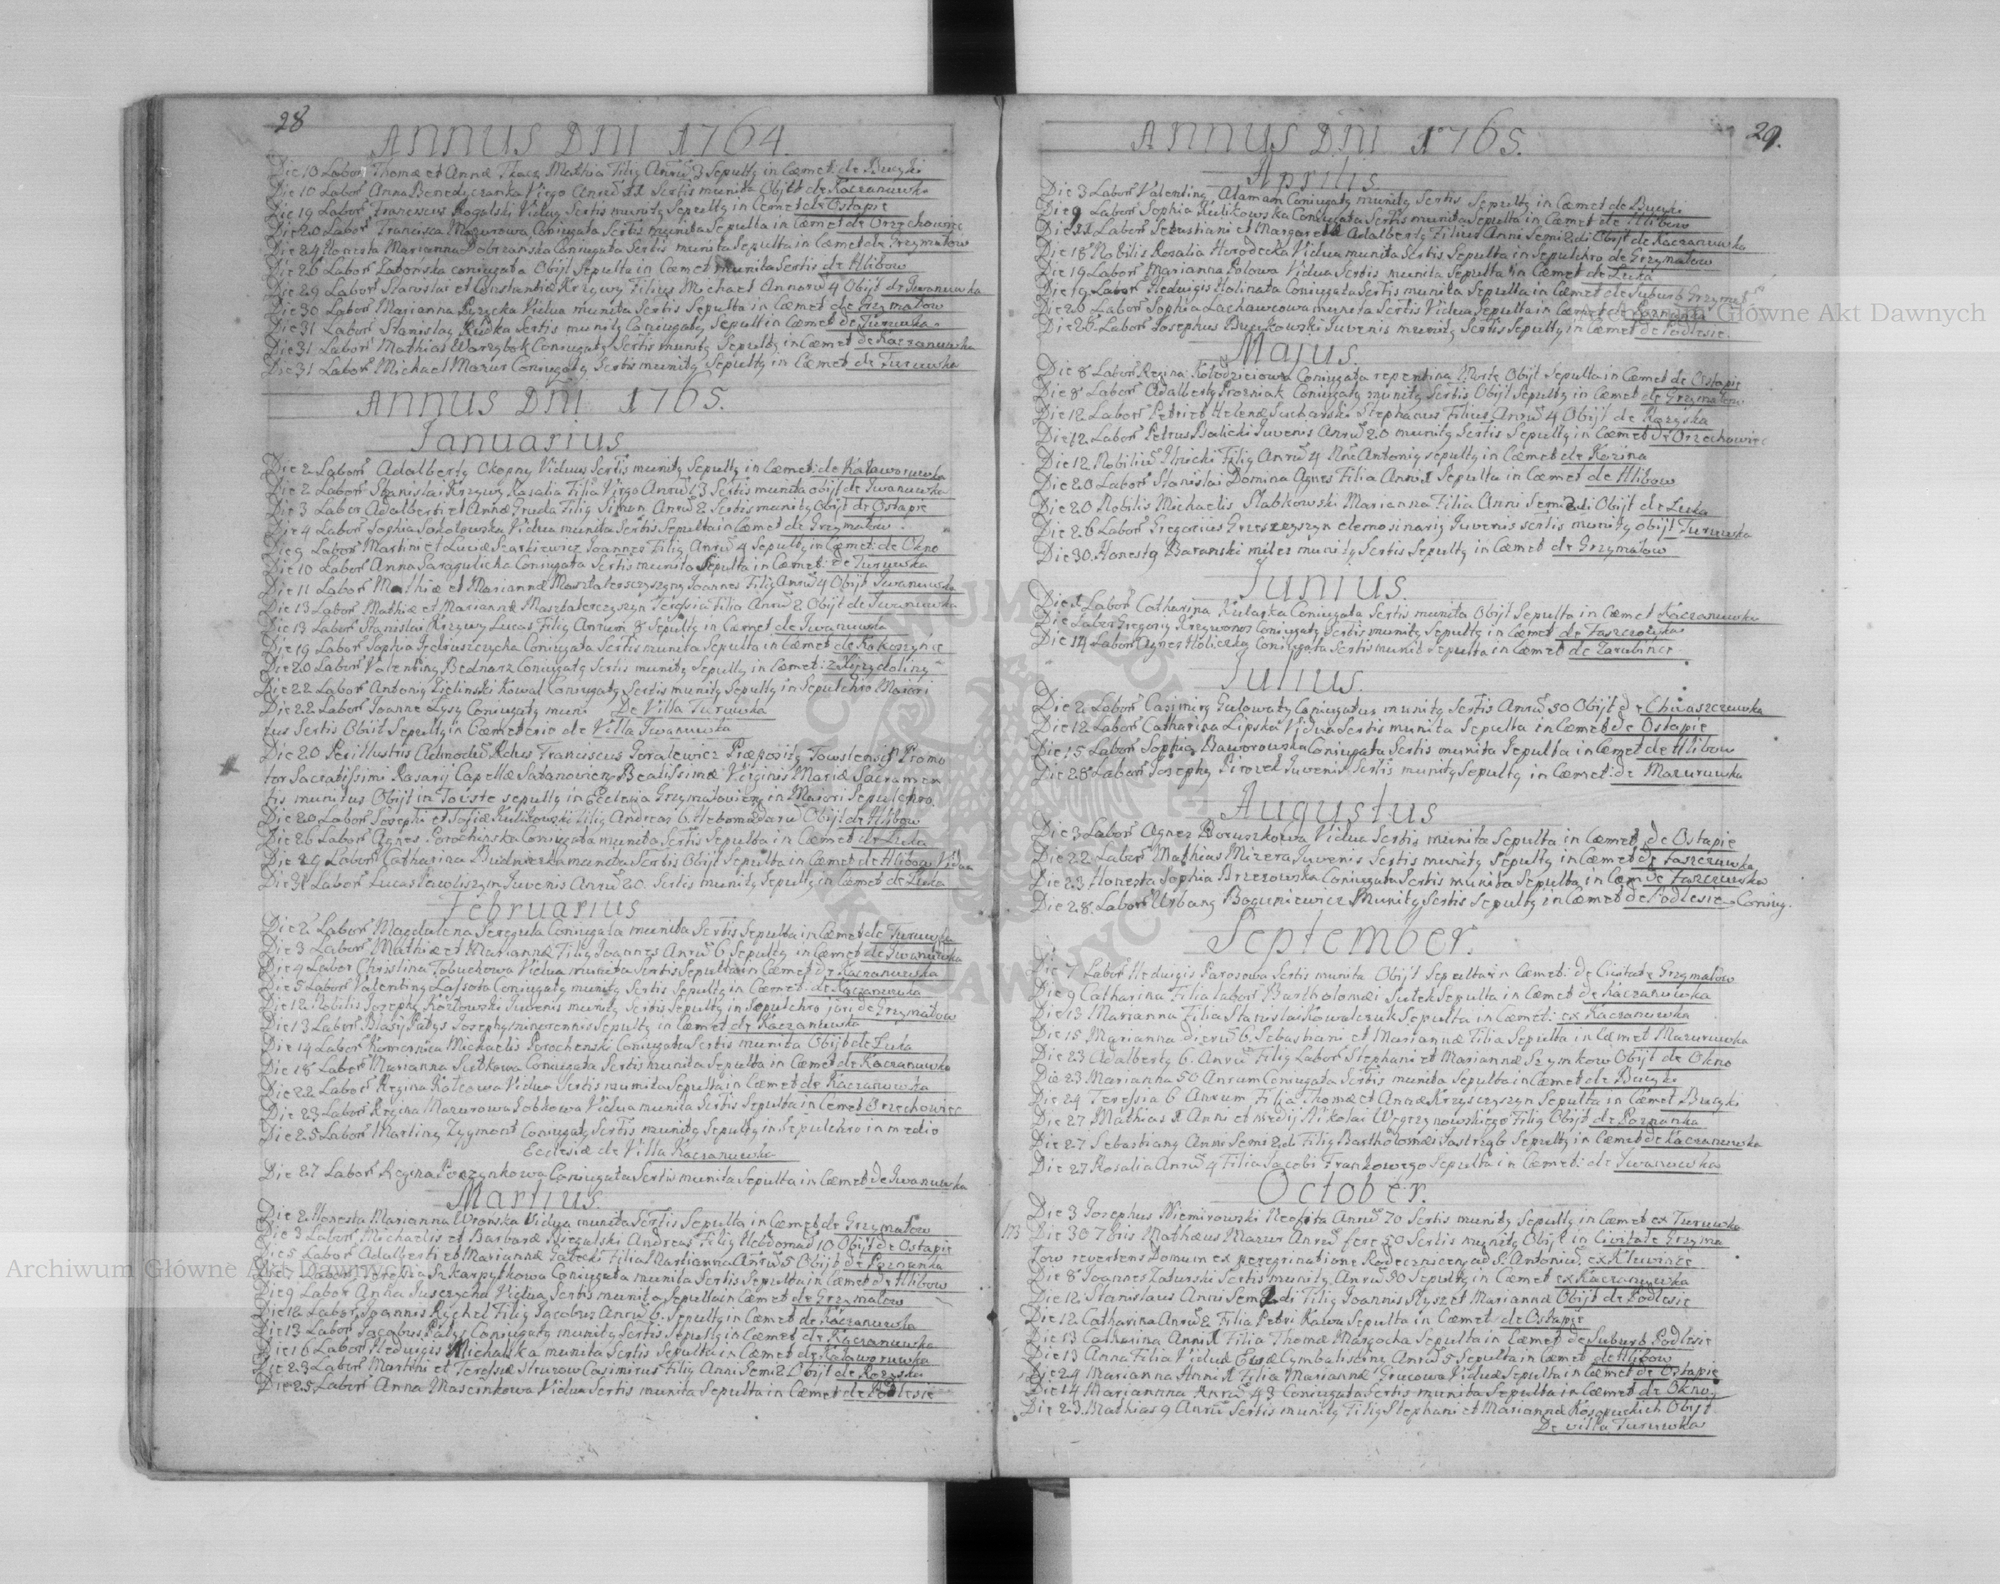 28
ANNUS DNI 1764.
Die 10 Labor Thomæ et Annæ Tkacz Mathia Filiq Anrū 3 Sepultq in Cœmet: de Bucyki
Die 10 Labor Anna Virgo Anrū Sertis munita Obijt de Kaczanuwka
Die 19 Labor Franciscus Rogalski Viduq Sertis munitq Sepultq in Cœmet de Ostapie
Die 20 Labor Francisca Mazurowa Coniugata Sertis munita Sepulta in Cœmet de Orzechowiec
Die 24 Honesta Marianna Dobrzańska Coniugata Sertis munita Sepulta in Cœmet de Grzymałow
Die 26 Labor Zabońska coniugata Obijt Sepulta in Cœmet munita Sertis de Hlibow
Die 29 Labor Starostai et Constantiæ Krzywy Filius Michael Annarū 4 Obijt de Iwanuwka
Die 30 Labor Marianna Vidua munita Sertis Sepulta in Cœmet de Grzymałow
Die 31 Labor Stanislaq Rudka Sertis munitq Coniugatq Sepult in Cœmet de Turuwka
Die 31 Labor Mathias Warzybok Coniugatq Sertis munitq Sepultq in Cœmet de Kaczanuwka
Die 31 Labor Michael Mazur Coniugatq Sertis munitq Sepultq in Cœmet de Turuwka
ANNUS DNI 1765.
Ianuarius
Die 2 Labor Adalbertq Okopny Viduus Sertis munitq Sepultq in Cœmet: de Kaławoruwka
Die 2 Labor Stanislai Krzywy Rosalia Filia Virgo Anrū 13 Sertis munita obijt de Iwanuwka
Die 3 Labor Adalberti et Annæ Gruda Filiq Simon Anrū 2 Sertis munitq Obijt de Ostapie
Die 4 Labor Sophia Sokołowska Vidua munita Sertis Sepulta in Cœmet de Grzymałow
Die 9 Labor Martini et Luciæ Szarkiewicz Ioannes Filiq Anrū 4 Sepultq in Cœmet: de Okno
Die 10 Labor Anna Saragulicha Coniugata Sertis munita Sepulta in Cœmet: de Turuwka
Die 11 Labor Mathiæ et Mariannæ Masztalerszyszyny Ioannes Filiq Anrū 4 Obijt Iwanuwka
Die 13 Labor Mathiæ et Mariannæ Masztalerczyszyn Teressia Filia Anrū 2 Obijt de Iwanuwka
Die 13 Labor Stanislai Krzywy Lucas Filiq Anrum 8 Sepultq in Cœmet de Iwanuwka
Die 19 Labor Sophia Jędruszczycka Coniugata Sertis munita Sepulta in Cœmet de Kokoszynce
Die 20 Labor Valentinq Bednarz Coniugatq Sertis munitq Sepultq in Cœmet:
Die 22 Labor Antoniq Zieliński Kowal Coniugatq Sertis munitq Sepultq in Sepulchro Maiari
Die 22 Labor Ioanne Łysy Coniugatq muni De Villa Turuwka
tus Sertis Obijt Sepultq in Cœmeterio de Villa Iwanuwka
Die 20 Perillustris Admodū Rdus Franciscus Goralewicz Præpositq Towstensis Promo
tor Sacratissimi Rosarij Capellæ Satanovien Beatissimæ Virginis Mariæ Sacramen
tis munitus Obijt in Toiste sepultq in Ecclesia Grzymałovien in Maiori Sepulchro
Die 20 Labor Iosephi et Sofiæ Kulikowski Filiq Andreas 6 Hebomadarū Obijt de Hlibow
Die 26 Labor Agnes Porochinska Coniugata munita Sertis Sepulta in Cœmet de Łuka
Die 29 Labor Catharina munita Sertis Obijt Sepulta in Cœmet de Hlibow Vidua
Die 31 Labor Lucas Iuvenis Anrū 20 Sertis munitq Sepultq in Cœmet de Łuka
Februarius
Die 2 Labor Magdalena Szreguła Coniugata munita Sertis Sepulta in Cœmet de Turuwka
Die 3 Labor Mathiæ et Mariannæ Filiq Ioannes Anrū 6 Sepultq in Cœmet de Iwanuwka
Die 4 Labor Christina Tobuchowa Vidua munita Sertis Sepulta in Cœmet de Kaczanuwka
Die 5 Labor Valentinq Lassota Coniugatq munitq Sertis Sepultq in Cœmet: de Kaczanuwka
Die 12 Nobilis Iosephq Kozłowski Iuvenis munitq Sertis Sepultq in Sepulchro de Grzymałow
Die 13 Labor Blasij Patys Iosephq minorennis Sepultq in Cœmet de Kaczanuwka
Die 14 Labor Komornica Michaelis Porochenski Coniugata Sertis munita Obijt de Łuka
Die 18 Labor Marianna Sutkowa Coniugata Sertis munita Sepulta in Cœmet de Kaczanuwka
Die 22 Labor Regina Katcowa Vidua Sertis munita Sepulta in Cœmet de Kaczanowka
Die 23 Labor Regina Mazurowa Sobkowa Vidua munita Sertis Sepulta in Cœmet Orzechowiec
Die 25 Labor Martinq Zygmont Coniugatq Sertis munitq Sepultq in Sepulchro in medio
Ecclesiæ de Villa Kaczanuwka
Die 27 Labor Regina Poczynkowa Coniugata Sertis munita Sepulta in Cœmet de Iwanuwka
Martius.
Die 2 Honesta Marianna Wrońska Vidua munita Sertis Sepulta in Cœmet de Grzymałow
Die 3 Labor Michaelis et Barbaræ Andreas Filiq Hebdomad 10 Obijt de Ostapie
Die 5 Labor Adalberti et Mariannæ Gałecki Filia Martianna Anrū 5 Obijt de Poznanka
Die 7 Labor Teressia Szkarpytkowa Coniugata munita Sertis Sepulta in Cœmet de Hlibow
Die 9 Labor Anna Suszczycha Vidua Sertis munita Sepulta in Cœmet de Grzymałow
Die 12 Labor Ioannis Rychel Filiq Iacobus Anrū 6 Sepultq in Cœmet de Kaczanuwka
Die 13 Labor Iacobus Patys Coniugatq munitq Sertis Sepultq in Cœmet de Kaczanuwka
Die 16 Labor Heduigis Michałka munita Sertis Sepulta in Cœmet de Kaławoruwka
Die 23 Labor Martini et Teressiæ Sturow Casimirus Filiq Anni Semi 2 Obijt de Rozyska
Die 25 Labor Anna Mascinkowa Vidua Sertis munita Sepulta in Cœmet de Podlesie
29.
ANNUS DNI 1765.
Aprilis
Die 3 Labor Valentinq Adamam Coniugatq munitq Sertis Sepultq in Cœmet de Bucyki
Die 9 Labor Sophia Kulikowska Coniugata Sertis munita Sepulta in Cœmet de Hlibow
Die 11 Labor Sebastiani et Margaretæ Adalbertq Filius Anni Semi 2di Obijt de Kaczanuwka
Die 18 Nobilis Rosalia Horodecka Vidua munita Sertis Sepulta in Sepulchro de Grzymałow
Die 19 Labor Marianna Polowa Vidua Sertis munita Sepulta in Cœmet de Łuka
Die 19 Labor Heduigis Holinata Coniugata Sertis munita Sepulta in Cœmet de Suburb Grzymał
Die 20 Labor Sophia Lachawcowa munita Sertis Vidua Sepulta in Cœmet de Poznanka
Die 26 Labor Iosephus Buczkowski Iuvenis munitq Sertis Sepultq in Cœmet de Podlesie
Majus.
Die 8 Labor Regina Kołodzieiowa Coniugata repentina Morte Obijt Sepulta in Cœmet de Ostapie
Die 8 Labor Adalbertq Prozniak Coniugatq munitq Sertis Obijt Sepultq in Cœmet de Grzymałow
Die 12 Labor Petri et Helenæ Sucharski Stephanus Filius Anrū 4 Obijt de Rozyska
Die 12 Labor Petrus Balicki Iuvenis Anrū 20 munitq Sertis Sepultq in Cœmet de Orzechowiec
Die 12 Nobiliū Ilnicki Filiq Anrū 4 Nne Antoniq sepultq in Cœmet de Kozina
Die 20 Labor Stanislai Domina Agnes Filia Anni 1 Sepulta in Cœmet de Hlibow
Die 20 Nobilis Michaelis Słabkowski Marianna Filia Anni Semi 2di Obijt de Łuka
Die 26 Labor Gregorius Grzeszczyszyn elemosinariq Iuvenis sertis munitq obijt Turuwka
Die 30 Honestq Baranski miles munitq Sertis Sepultq in Cœmet de Grzymałow
Iunius.
Die 1 Labor Catharina Kułaska Coniugata Sertis munita Obijt Sepulta in Cœmet Kaczanuwka
Die Labor Gregoriq Krzywonos Coniugatq Sertis munitq Sepultq in Cœmet de FaszczoWka
Die 14 Labor Agnes Holiczka Coniugata Sertis munit Sepulta in Cœmet de Zarubince
Iulius.
Die 2 Labor Casimirq Gułowatq Coniugatus munitq Sertis Anrū 30 Obijt de Chwaszczewka
Die 12 Labor Catharina Lipska Vidua Sertis munita Sepulta in Cœmet de Ostapie
Die 15 Labor Sophia Baworowska Coniugata Sertis munita Sepulta in Cœmet de Hlibow
Die 28 Labor Iosephq Pirozek Iuvenis Sertis munitq Sepultq in Cœmet: de Mazuruwka
Augustus
Die 3 Labor Agnes Boruszkowa Vidua Sertis munita Sepulta in Cœmet de Ostapie
Die 22 Labor Mathias Mizera Iuvenis Sertis munitq Sepultq in Cœmet de Faszczuwka
Die 23 Honesta Sophia Brzezowska Coniugata Sertis munita Sepulta in Cœm de Faszczuwka
Die 28 Labor Urbanq Baguniewicz Munitq Sertis Sepultq in Cœmet de Podlesie Coniug.
September.
Die 7 Labor Heduigis Parosowa Sertis munita Obijt Sepulta in Cœmet: de Civitate Grzymałow
Die 9 Catharina Filia Labor Bartholomæi Sutek Sepulta in Cœmet de Kaczanuwka
Die 13 Marianna Filia Stanislai Kowalczuk Sepulta in Cœmet: ex Kaczanuwka
Die 15 Marianna dierū 6 Sebastiani et Mariannæ Filia Sepulta in Cœmet Mazuruwka
Die 23 Adalbertq 6 Anrū Filiq Labor Stephani et Mariannæ Szymkow Obijt de Okno
Die 23 Marianna 50 Anrum Coniugata Sertis munita Sepulta in Cœmet de Bucyki
Die 24 Teressia 6 Anrum Filia Thomæ et Annæ Krzyszczyszyn Sepulta in Cœmet Bucyki
Die 27 Mathias 1 Anni et medij Nikolai Węgrzynowskiego Filiq Obijt de Poznanka
Die 27 Sebastianq Anni Semi 2di Filiq Bartholomæi Iastrząb Sepultq in Cœmet de Kaczanuwka
Die 27 Rosalia Anrū 4 Filia Iacobi Frankowego Sepulta in Cœmet: de Iwanuwka
October.
Die 3 Iosephus Niemirowski Neofita Anrū 70 Sertis munitq Sepultq in Cœmet ex Turuwka
Die 30 7bris Mathæus Mazur Anrū fere 50 Sertis munitq Obijt in Civitate Grzyma
łow revertens Domum ex peregrinatione ad S. Antoniū ex Klewince
Die 8 Ioannes Zaturski Sertis munitq Anrū 30 Sepultq in Cœmet ex Kaczanuwka
Die 12 Stanislaus Anni Semi 2di Filiq Ioannis Ryszet Mariannæ Obijt de Podlesie
Die 12 Catharina Anrū 2 Filia Petri Kawa Sepulta in Cœmet de Ostapie
Die 13 Catharina Anni 1 Filia Thomæ Margocha Sepulta in Cœmet de Suburb Podlesie
Die 13 Anna Filia Viduæ Evæ Cymbalistiny Anrū 5 Sepulta in Cœmet de Hlibow
Die 24 Marianna Anni 1 Filia Mariannæ Grucowa Viduæ Sepulta in Cœmet de Ostapie
Die 14 Marianna Anrū 43 Coniugata Sertis munita Sepulta in Cœmet de Okno
Die 23 Mathias 9 Anrū Sertis munitq Filiq Stephani et Mariannæ Kosopuckich Obijt
De villa Turuwka
Archiwum Główne Akt Dawnych
Archiwum Główne Akt Dawnych